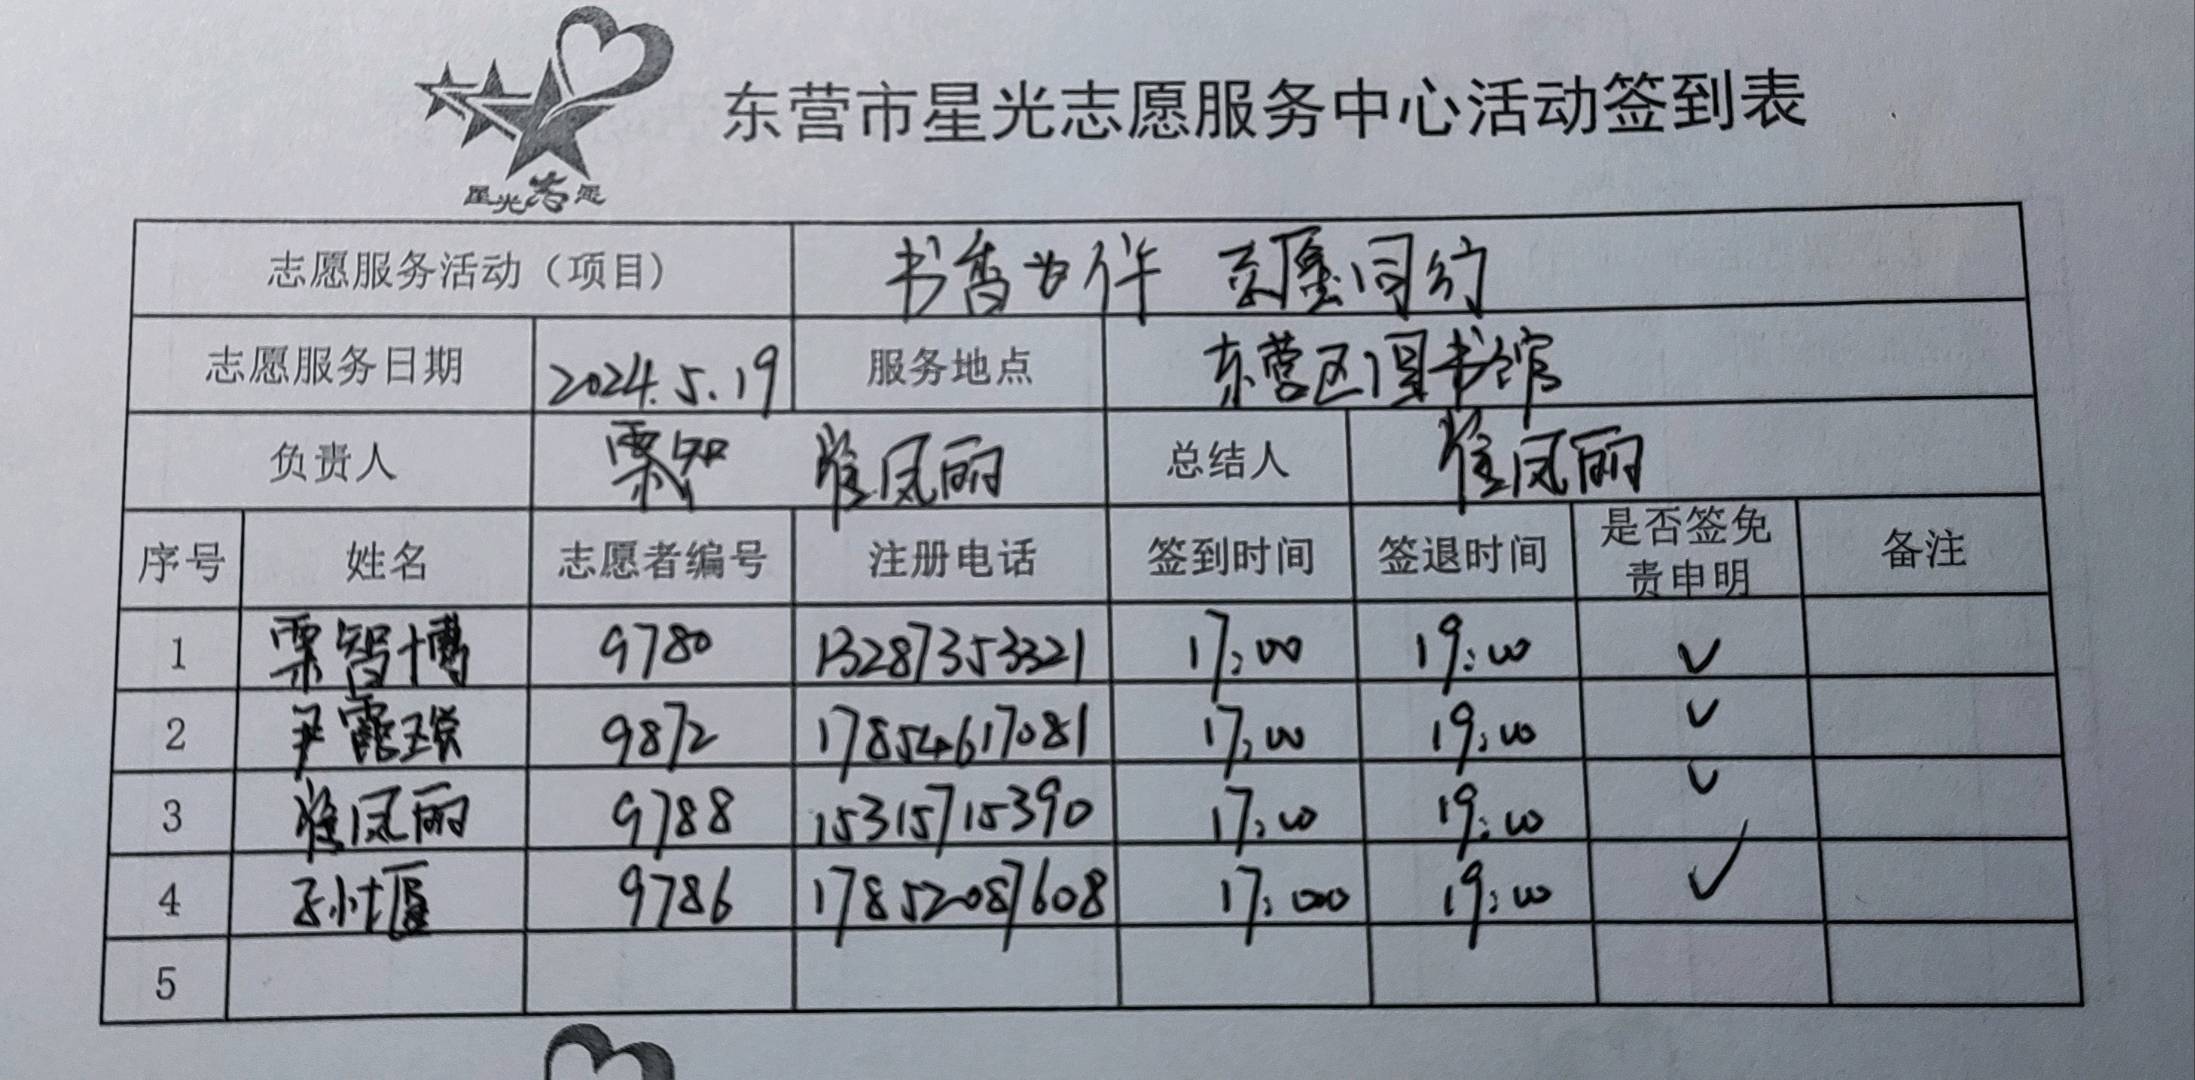 星光志愿
东营市星光志愿服务中心活动签到表
志愿服务活动（项目） 书香为伴 志愿同行
志愿服务日期 2024.5.19 服务地点 东营区图书馆
负责人 栗智 崔凤丽 总结人 崔凤丽
序号 姓名 志愿者编号 注册电话 签到时间 签退时间 是否签免责申明 备注
1 栗智博 9780 13287353321 17:00 19:00 ✓
2 尹霞 9872 17854617081 17:00 19:00 ✓
3 崔凤丽 9788 15315715390 17:00 19:00 ✓
4 孙 9786 17852087608 17:000 19:00 ✓
5